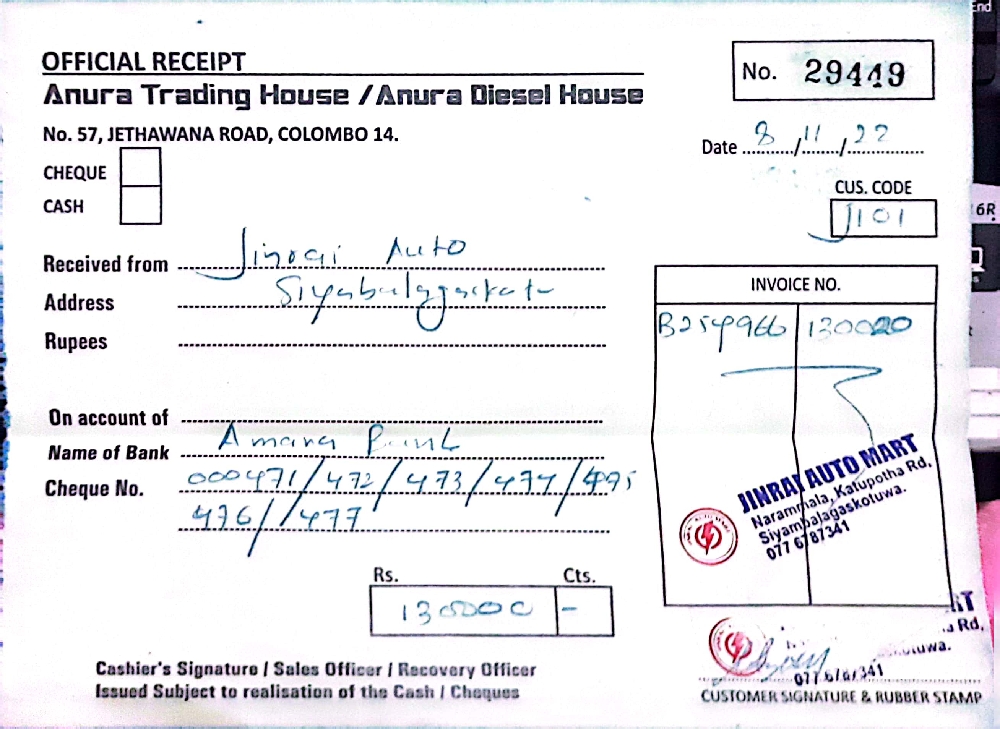 OFFICIAL RECEIPT
Anura Trading House / Anura Diesel House
No. 57, JETHAWANA ROAD, COLOMBO 14.
No. 29449
Date 8/11/22
CHEQUE
CASH
CUS. CODE
J101
Received from Jinrai Auto
Address
Rupees
INVOICE NO.
B254966 130000
On account of
Name of Bank Amana Bank
Cheque No. 000471/472/473/474/475
476//477
JINRAI AUTO MART
Narammala, Katupotha Rd,
Siyambalagaskotuwa.
077 6787341
Rs. Cts.
130000 -
Cashier's Signature / Sales Officer / Recovery Officer
Issued Subject to realisation of the Cash / Cheques
CUSTOMER SIGNATURE & RUBBER STAMP